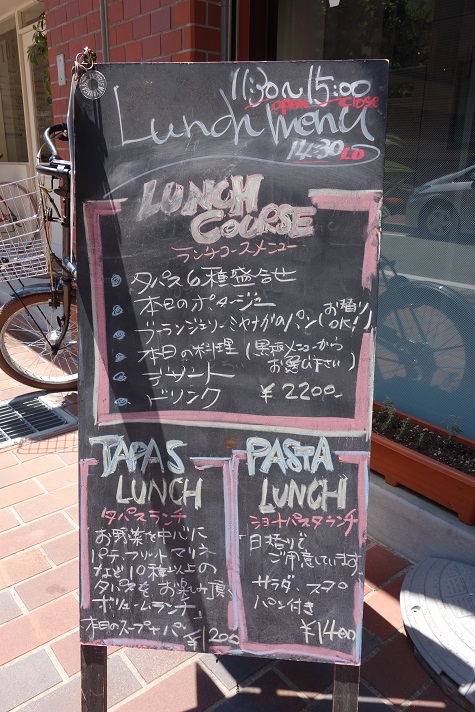 11:30〜15:00
open close
Lunch menu
14:30 LO
LUNCH
COURSE
ランチコースメニュー
タパス6種盛合せ
本日のポタージュ
ブーランジェリーミヤナガのパン(お替りOK!)
本日の料理(黒板メニューからお選び下さい)
デザート
ドリンク
¥2200-
TAPAS
LUNCH
タパスランチ
お野菜を中心に
パテ、フリット、マリネ
など10種以上の
タパスをお楽しみ頂く
ボリュームランチ
本日のスープ+パン ¥1200
PASTA
LUNCH
ショートパスタランチ
日替りで
ご用意しています。
サラダ、スープ
パン付き
¥1400